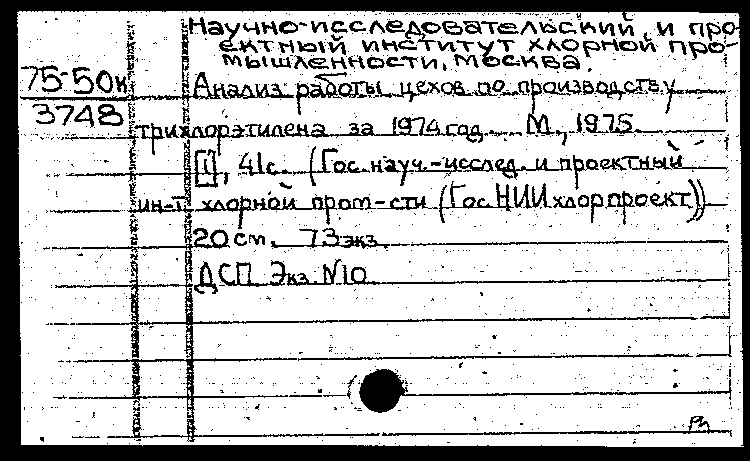 Научно-исследовательский и про-
ектный институт хлорной про-
мышленности, Москва.
75-50к
3748
Анализ работы цехов по производству
трихлорэтилена за 1974 год. М., 1975.
[1], 41с. (Гос. науч.-исслед. и проектный
ин-т хлорной пром-сти (ГосНИИхлорпроект))
20 см. 73 экз.
ДСП Экз. N10